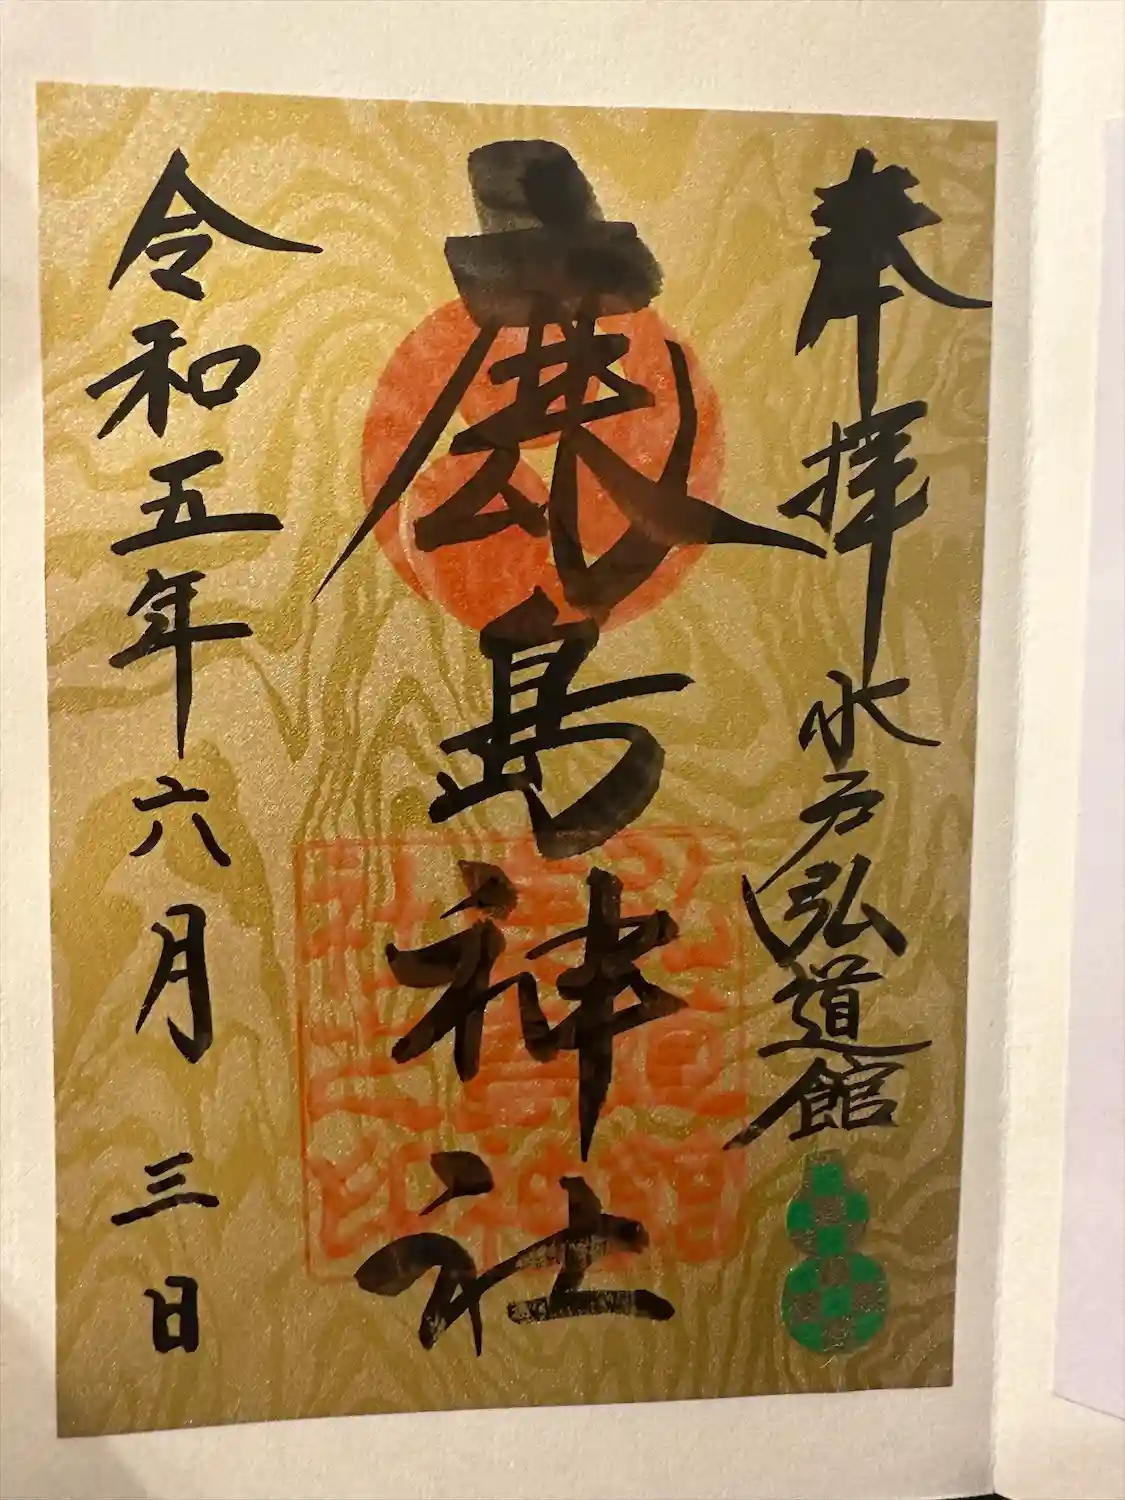 奉拝 水戸弘道館
鹿島神社
令和五年六月三日